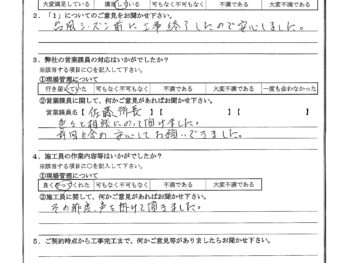 大変満足している 満足している 可もなく不可もなく 不満である 大変不満である
2．「1」についてのご意見をお聞かせ下さい。
台風シーズン前に工事終了したので安心しました。
3．弊社の営業課員の対応はいかがでしたか？
※該当する項目に○を記入して下さい。
①現場管理について
行き届いていた 可もなく不可もなく 不満である 大変不満である 一度も会わなかった
②営業課員に関して、何かご意見があればお聞かせ下さい。
営業課員名【佐藤所長】【 】【 】
色々と相談にのって頂けました。
費用も含め安心してお願いできました。
4．施工員の作業内容等はいかがでしたか？
※該当する項目に○を記入して下さい。
①現場管理について
良くやってくれた 可もなく不可もなく 不満である 大変不満である
②施工員に関して、何かご意見があればお聞かせ下さい。
その都度、声を掛けて頂きました。
5．ご契約時点から工事完工まで、何かご意見等がありましたらお聞かせ下さい。